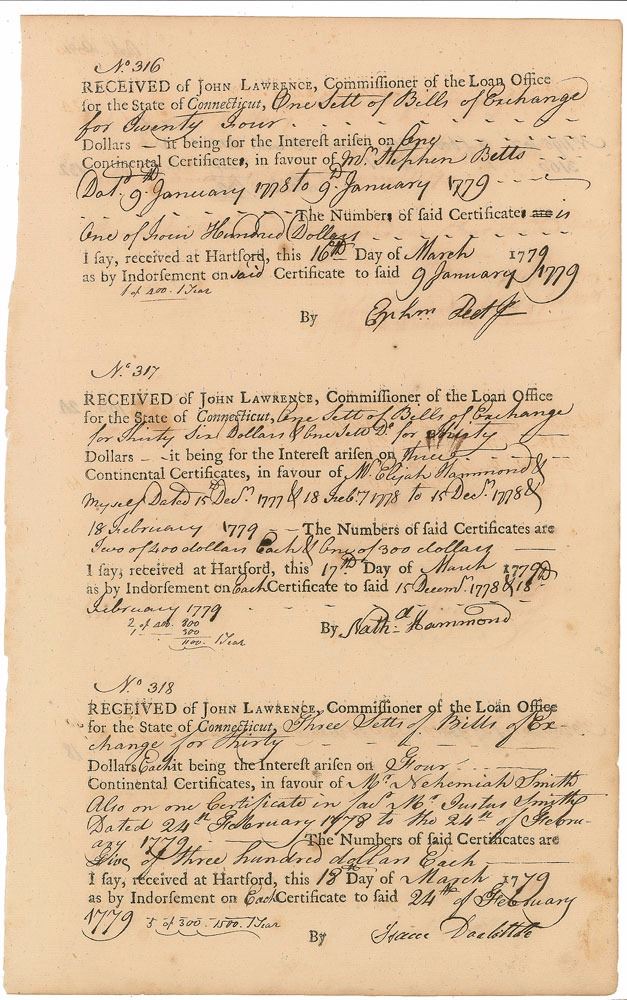 No. 316
RECEIVED of JOHN LAWRENCE, Commissioner of the Loan Office
for the State of Connecticut, One Sett of Bills of Exchange
for Twenty Four
Dollars — it being for the Interest arisen on One
Continental Certificates, in favour of Mr. Stephen Betts
Dat.d 9th January 1778 to 9th January 1779
The Numbers of said Certificates are is
One of Four Hundred Dollars
I say, received at Hartford, this 16th Day of March 1779
as by Indorsement on said Certificate to said 9 January 1779
1 of 400. 1 Year
By Ephm
No. 317
RECEIVED of JOHN LAWRENCE, Commissioner of the Loan Office
for the State of Connecticut, One Sett of Bills of Exchange
for Thirty Six Dollars & One Sett Do. for Thirty
Dollars — it being for the Interest arisen on Three
Continental Certificates, in favour of Mr. Elijah Hammond &
Myself Dated 15th Decr. 1777 & 18 Feby 1778 to 15 Decr. 1778 &
18 February 1779 — The Numbers of said Certificates are
Two of 400 dollars Each & One of 300 dollars
I say, received at Hartford, this 17th Day of March 1779
as by Indorsement on Each Certificate to said 15 Decemr. 1778 & 18th
February 1779
2 of 400. 800
1 300
1100. 1 Year
By Nathl. Hammond
No. 318
RECEIVED of JOHN LAWRENCE, Commissioner of the Loan Office
for the State of Connecticut, Three Setts of Bills of Ex-
change for Thirty
Dollars Each it being the Interest arisen on Four
Continental Certificates, in favour of Mr. Nehemiah Smith
Also on one Certificate in favr. Mr. Justus Smith
Dated 24th February 1778 to the 24th of Febru-
ary 1779 The Numbers of said Certificates are
Five of three hundred dollars Each
I say, received at Hartford, this 18th Day of March 1779
as by Indorsement on Each Certificate to said 24th of February
1779 5 of 300. 1500. 1 Year
By Isaac Doolittle